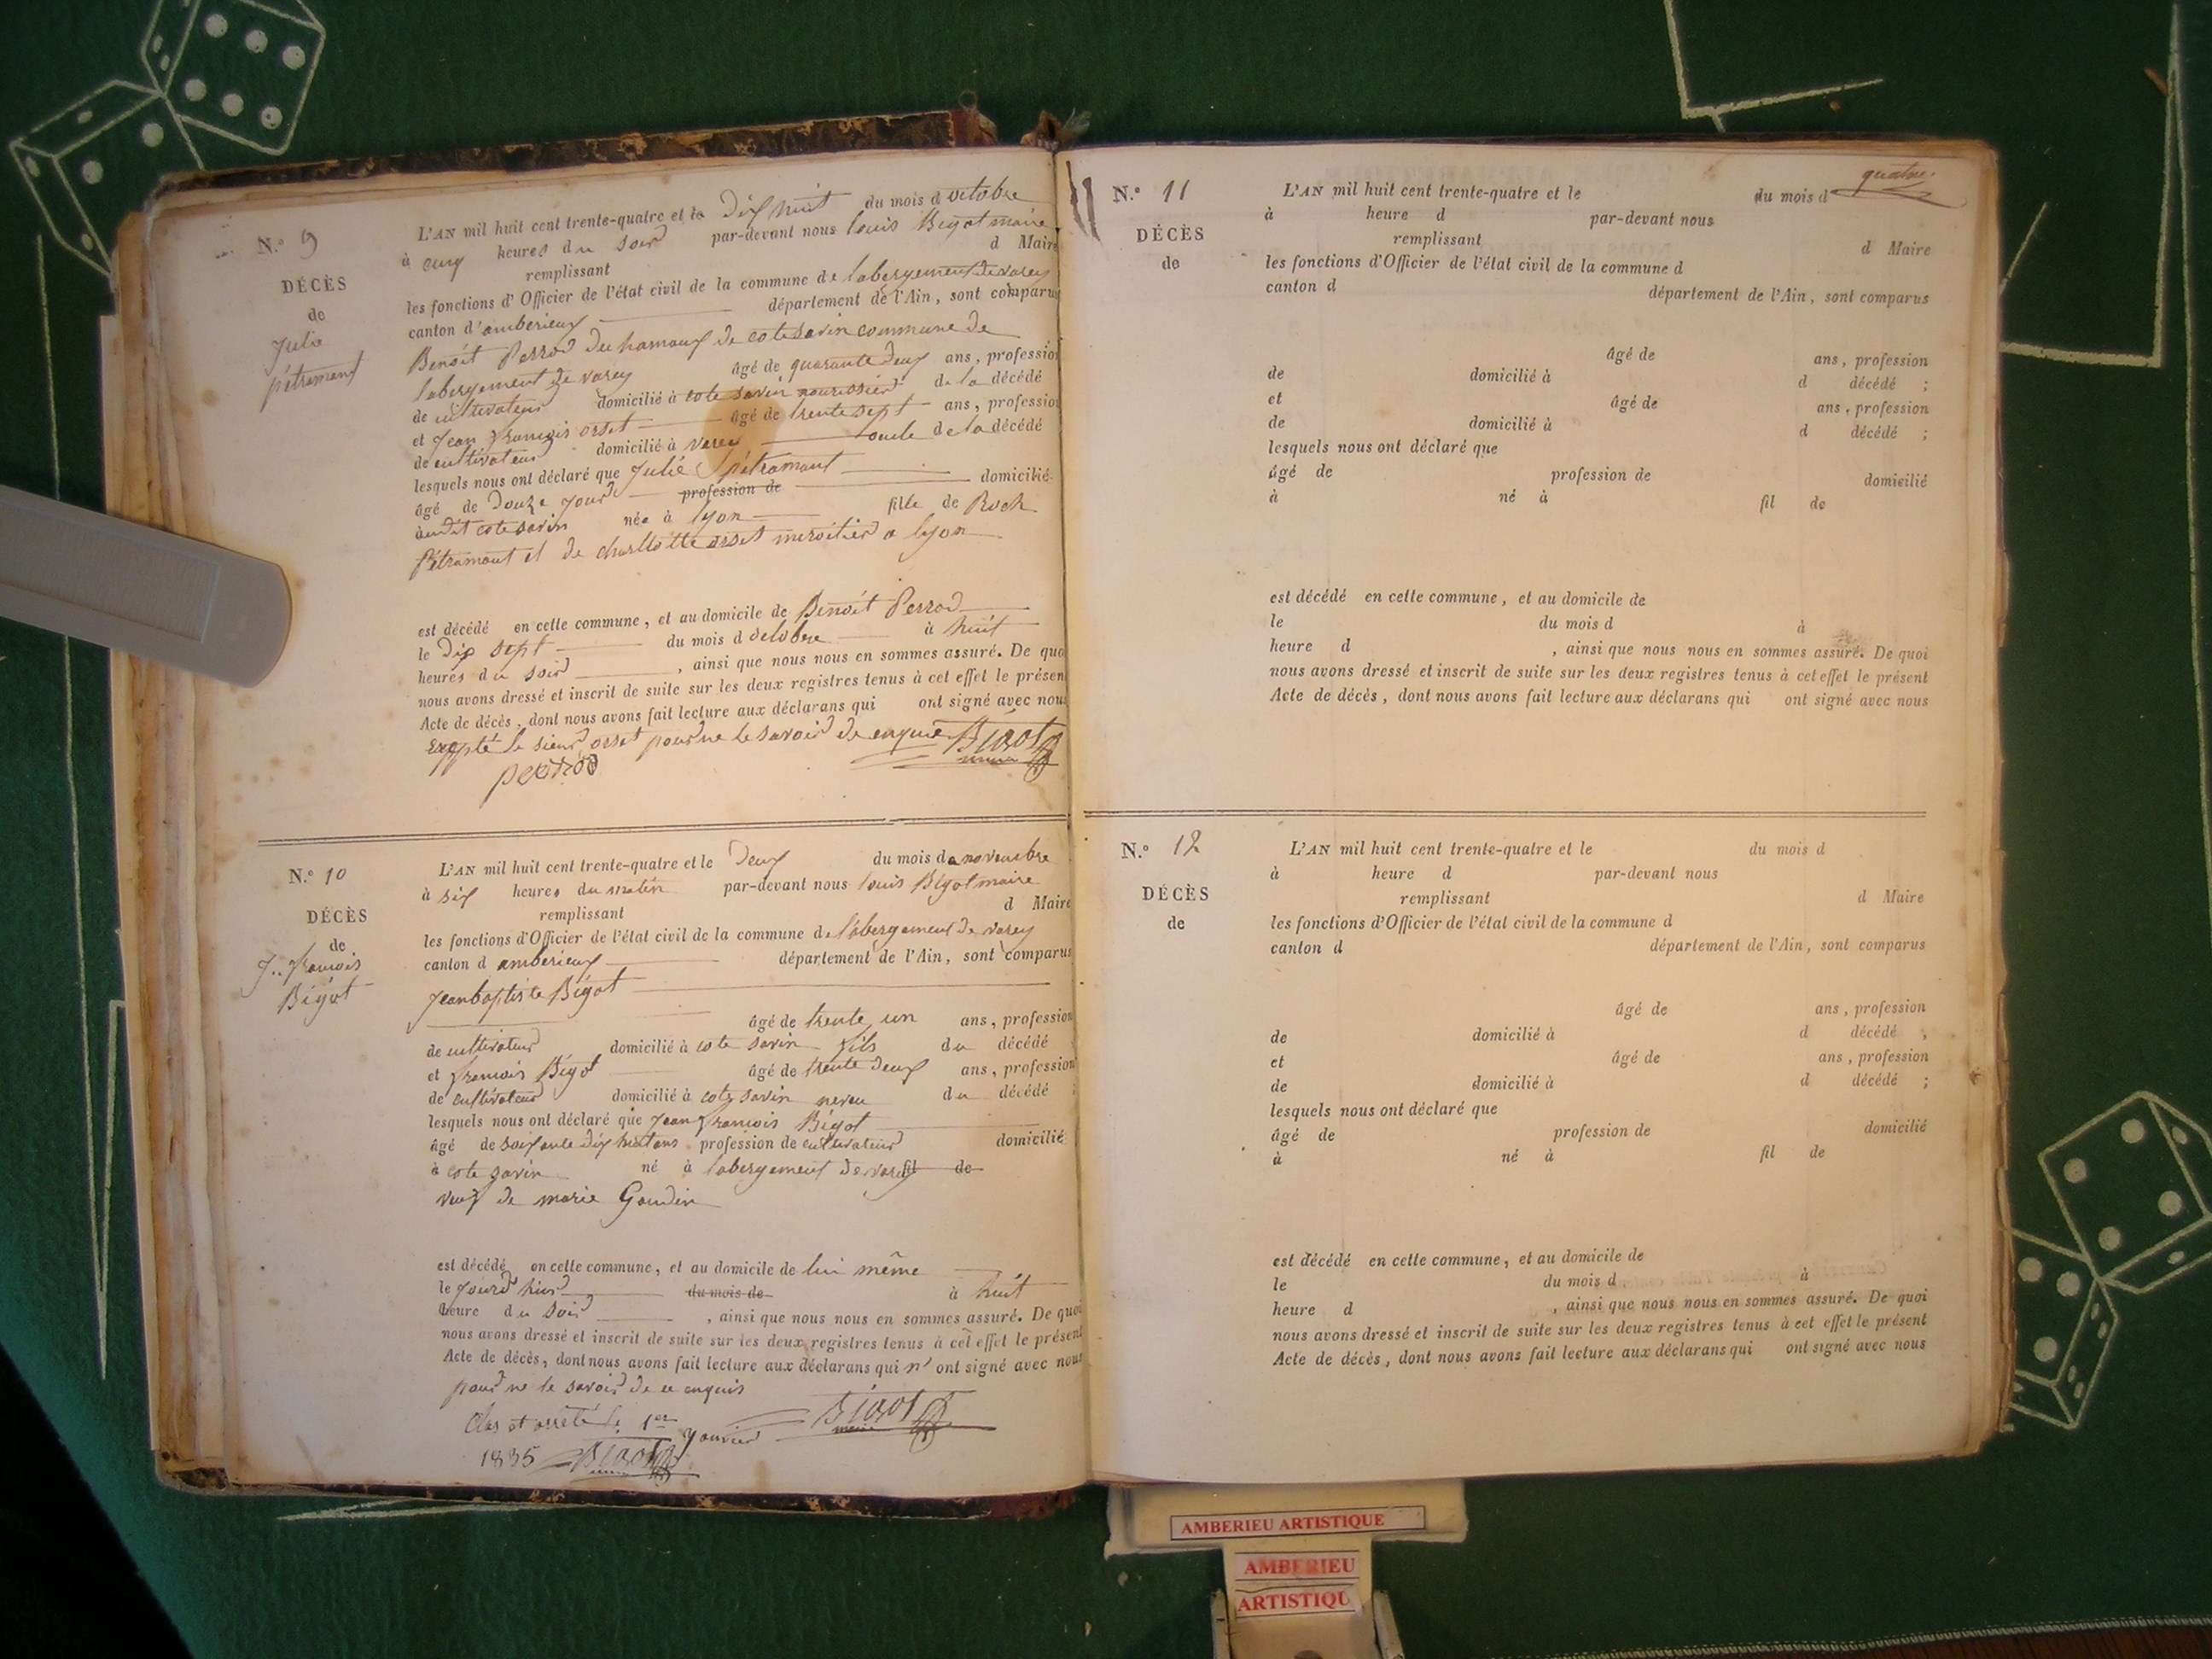 N.° 9
DÉCÈS
de
Julie
pétramant
L'AN mil huit cent trente-quatre et le Dix huit du mois d octobre
à cinq heures du soir par-devant nous louis Bigot maire
remplissant d Maire
les fonctions d'Officier de l'état civil de la commune de labergement de varey
canton d'amberieux département de l'Ain, sont comparus
Benoit Perrod du hamaux de cote savin commune de
labergement de varey âgé de quarante deux ans, profession
de cultivateur domicilié à cote savin nourissier de la décédé
et Jean françois orset âgé de trente sept ans, profession
de cultivateur domicilié à varey oncle de la décédé
lesquels nous ont déclaré que Julie pétramant
âgé de Douze jours profession de domicilié
audit cote savin née à lyon fille de Roch
Pétramant et de charllotte orset à lyon
est décédé en cette commune, et au domicile de Benoit Perrod
le dix sept du mois d octobre à huit
heures du soir , ainsi que nous nous en sommes assuré. De quoi
nous avons dressé et inscrit de suite sur les deux registres tenus à cet effet le présent
Acte de décès, dont nous avons fait lecture aux déclarans qui ont signé avec nous
excepté le sieur orset pour ne le savoir de enquis Bigot
perrod maire
N.° 10
DÉCÈS
de
J. françois
Bigot
L'AN mil huit cent trente-quatre et le Deux du mois de novembre
à six heures du matin par-devant nous louis Bigot maire
remplissant d Maire
les fonctions d'Officier de l'état civil de la commune de labergement de varey
canton d amberieux département de l'Ain, sont comparus
Jean baptiste Bigot
âgé de trente un ans, profession
de cultivateur domicilié à cote savin fils du décédé
et françois Bigot âgé de trente deux ans, profession
de cultivateur domicilié à cote savin neveu du décédé ;
lesquels nous ont déclaré que Jean françois Bigot
âgé de soixante dix huit ans profession de cultivateur domicilié
à cote savin né à labergement de varey fil de
veuf de marie Goudin
est décédé en cette commune, et au domicile de lui même
le jourd'hier du mois de à huit
heure du soir , ainsi que nous nous en sommes assuré. De quoi
nous avons dressé et inscrit de suite sur les deux registres tenus à cet effet le présent
Acte de décès, dont nous avons fait lecture aux déclarans qui n'ont signé avec nous
pour ne le savoir de ce enquis
Bigot
maire
Clos et arrêté le 1er Janvier
1835 Bigot
quatre
N.° 11
DÉCÈS
de
L'AN mil huit cent trente-quatre et le du mois d
à heure d par-devant nous
remplissant d Maire
les fonctions d'Officier de l'état civil de la commune d
canton d département de l'Ain, sont comparus
âgé de ans, profession
de domicilié à d décédé ;
et âgé de ans, profession
de domicilié à d décédé ;
lesquels nous ont déclaré que
âgé de profession de domicilié
à né à fil de
est décédé en cette commune, et au domicile de
le du mois d à
heure d , ainsi que nous nous en sommes assuré. De quoi
nous avons dressé et inscrit de suite sur les deux registres tenus à cet effet le présent
Acte de décès, dont nous avons fait lecture aux déclarans qui ont signé avec nous
N.° 12
DÉCÈS
de
L'AN mil huit cent trente-quatre et le du mois d
à heure d par-devant nous
remplissant d Maire
les fonctions d'Officier de l'état civil de la commune d
canton d département de l'Ain, sont comparus
âgé de ans, profession
de domicilié à d décédé ,
et âgé de ans, profession
de domicilié à d décédé ;
lesquels nous ont déclaré que
âgé de profession de domicilié
à né à fil de
est décédé en cette commune, et au domicile de
le du mois d à
heure d , ainsi que nous nous en sommes assuré. De quoi
nous avons dressé et inscrit de suite sur les deux registres tenus à cet effet le présent
Acte de décès, dont nous avons fait lecture aux déclarans qui ont signé avec nous
AMBERIEU ARTISTIQUE
AMBERIEU
ARTISTIQU